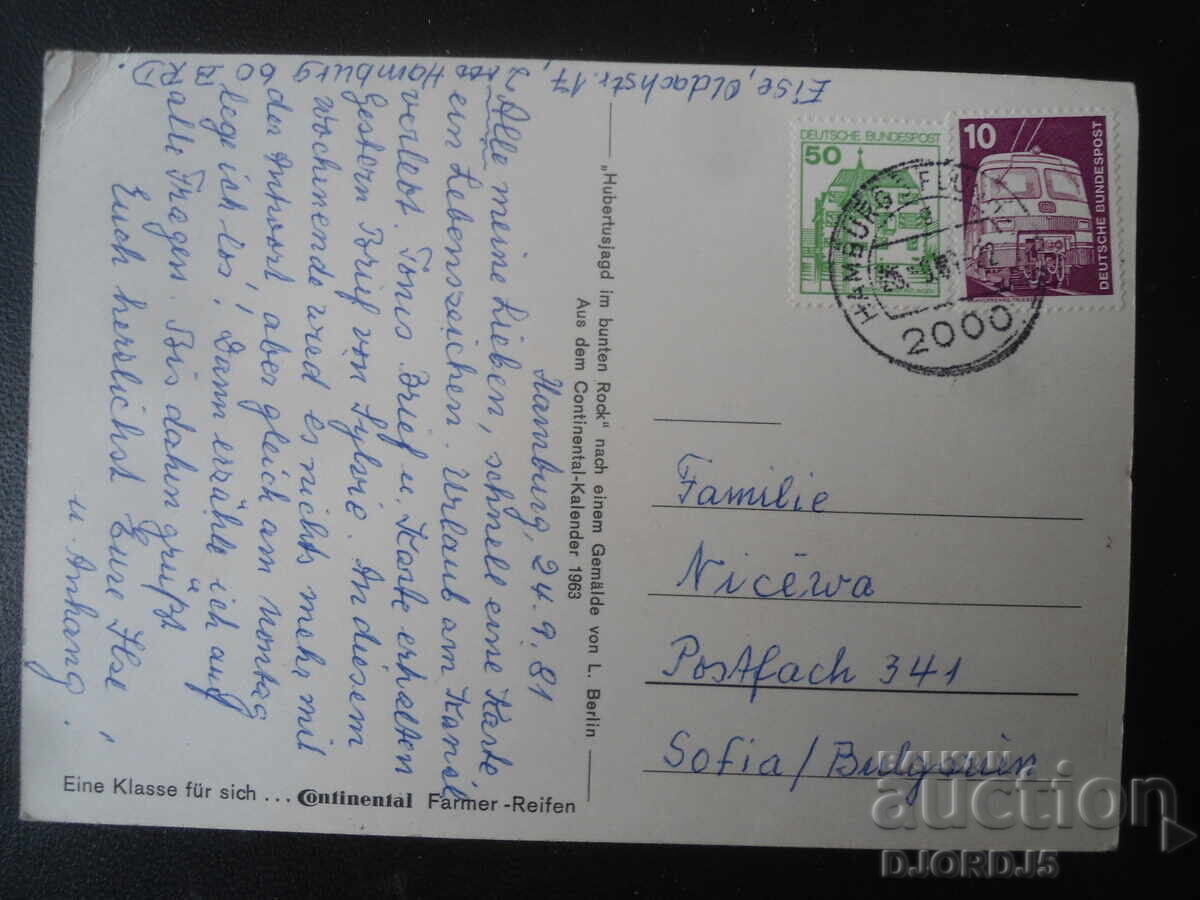 Eise, Oldachstr. 17,
Hamburg 60
BRD
Hamburg, 24.9.81
Alle meine Lieben, schnell eine Karte
ein Lebenszeichen. Urlaub am Kanal
verlebt. Tonis Brief u. Karte erhalten
Gestern Brief von Sylvio. An diesem
Wochenende wred es nichts mehr mit
der Antwort, aber gleich am Montag
lege ich los! Dann erzähle ich auf
alle Fragen. Bis dahin grüßt
Euch herzlichst Eure Ilse
u. Anhang.
„Hubertusjagd im bunten Rock" nach einem Gemälde von L. Berlin
Aus dem Continental-Kalender 1963
Eine Klasse für sich ... Continental Farmer-Reifen
DEUTSCHE BUNDESPOST
50
10
DEUTSCHE BUNDESPOST
HAMBURG
2000
Familie
Nicéwa
Postfach 341
Sofia/Bulgarien
auction
DJORDJ5